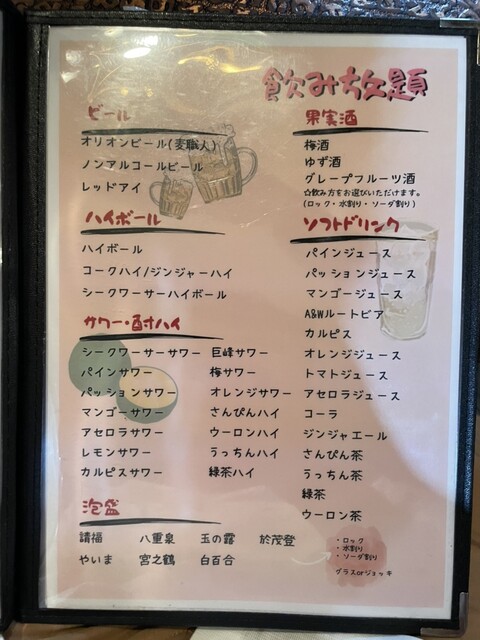 飲み放題
ビール
オリオンビール(麦職人)
ノンアルコールビール
レッドアイ
ハイボール
ハイボール
コークハイ/ジンジャーハイ
シークワーサーハイボール
サワー・酎ハイ
シークワーサーサワー 巨峰サワー
パインサワー 梅サワー
パッションサワー オレンジサワー
マンゴーサワー さんぴんハイ
アセロラサワー ウーロンハイ
レモンサワー うっちんハイ
カルピスサワー 緑茶ハイ
泡盛
請福 八重泉 玉の露 於茂登
やいま 宮之鶴 白百合
果実酒
梅酒
ゆず酒
グレープフルーツ酒
☆飲み方をお選びいただけます。
(ロック・水割り・ソーダ割り)
ソフトドリンク
パインジュース
パッションジュース
マンゴージュース
A&Wルートビア
カルピス
オレンジジュース
トマトジュース
アセロラジュース
コーラ
ジンジャエール
さんぴん茶
うっちん茶
緑茶
ウーロン茶
・ロック
・水割り
・ソーダ割り
グラスorジョッキ